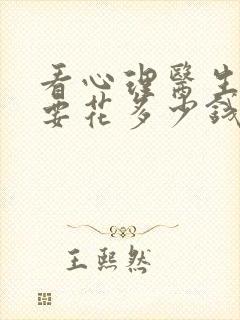 看心理醫生
要花多少錢
王熙然